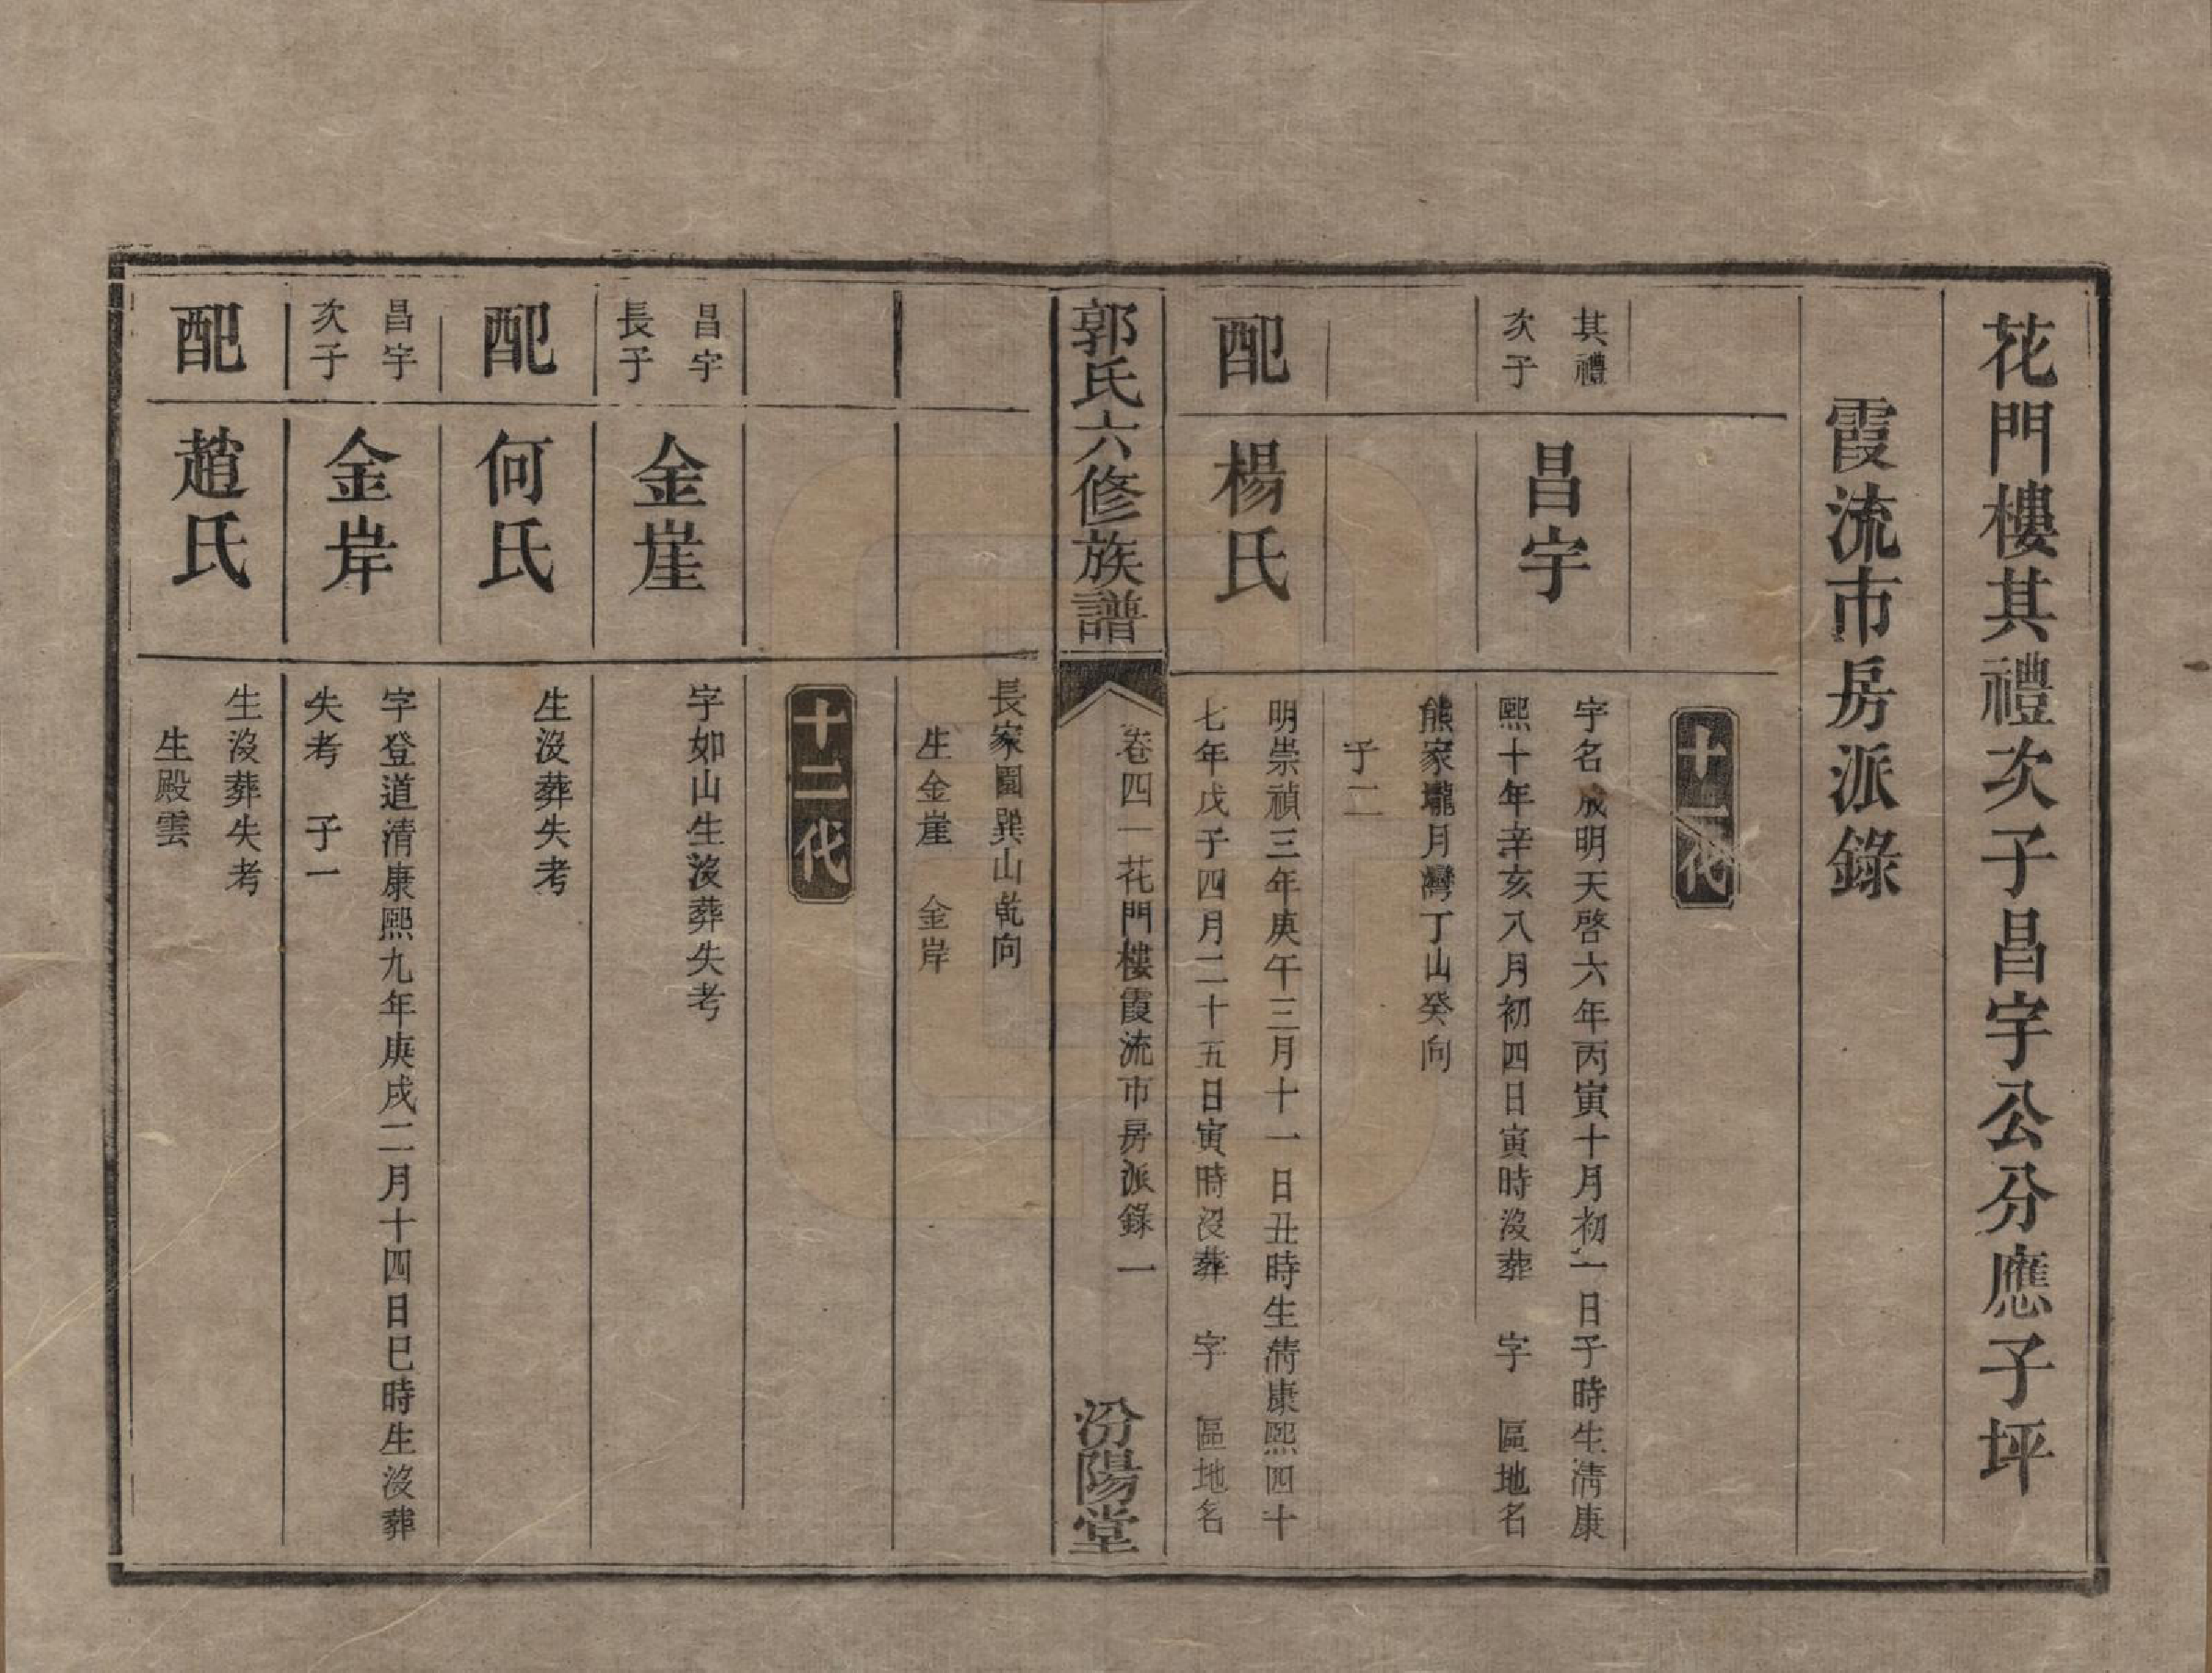 花門樓其禮次子昌宇公分應子坪
霞流市房派錄
十一代
其禮
次子
昌宇
字名成明天啓六年丙寅十月初一日子時生清康
熙十年辛亥八月初四日寅時沒葬 字 區地名
熊家壠月灣丁山癸向
子二
配
楊氏
明崇禎三年庚午三月十一日丑時生清康熙四十
七年戊子四月二十五日寅時沒葬 字 區地名
郭氏六修族譜
卷四 花門樓霞流市房派錄 一
汾陽堂
長家園巽山乾向
生金崖 金岸
十二代
昌宇
長子
金崖
字如山生沒葬失考
配
何氏
生沒葬失考
昌宇
次子
金岸
字登道清康熙九年庚戌二月十四日巳時生沒葬
失考 子一
配
趙氏
生沒葬失考
生殿雲